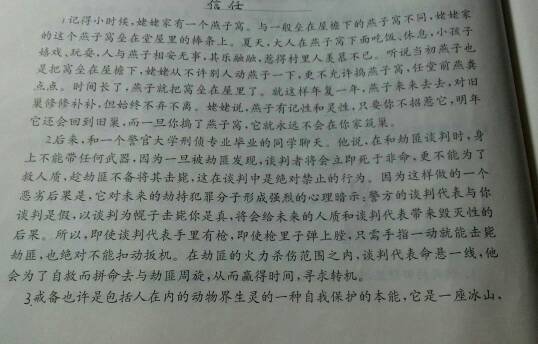 信任
1记得小时候,姥姥家有一个燕子窝。与一般垒在屋檐下的燕子窝不同,姥姥家
的这个燕子窝垒在堂屋里的棒条上。夏天,大人在燕子窝下面吃饭、休息,小孩子
嬉戏、玩耍,人与燕子相安无事,其乐融融,惹得村里人羡慕不已。听说当初燕子也
是把窝垒在屋檐下,姥姥从不许别人动燕子一下,更不允许捣燕子窝,任堂前燕粪
点点。时间长了,燕子就把窝垒在屋里了。就这样年复一年,燕子来来去去,对旧
巢修修补补,但始终不弃不离。姥姥说,燕子有记性和灵性,只要你不招惹它,明年
它还会回到旧巢,而一旦你捣了燕子窝,它就永远不会在你家筑巢。
2后来,和一个警官大学刑侦专业毕业的同学聊天。他说,在和劫匪谈判时,身
上不能带任何武器,因为一旦被劫匪发现,谈判者将会立即死于非命,更不能为了
救人质,趁劫匪不备将其击毙,这在谈判中是绝对禁止的行为。因为这样做的一个
恶劣后果是,它对未来的劫持犯罪分子形成强烈的心理暗示:警方的谈判代表与你
谈判是假,以谈判为幌子击毙你是真,将会给未来的人质和谈判代表带来毁灭性的
后果。所以,即使谈判代表手里有枪,即使枪里子弹上膛,只需手指一动就能击毙
劫匪,也绝对不能扣动扳机。在劫匪的火力杀伤范围之内,谈判代表命悬一线,他
会为了自救而拼命去与劫匪周旋,从而赢得时间,寻求转机。
3戒备也许是包括人在内的动物界生灵的一种自我保护的本能,它是一座冰山,